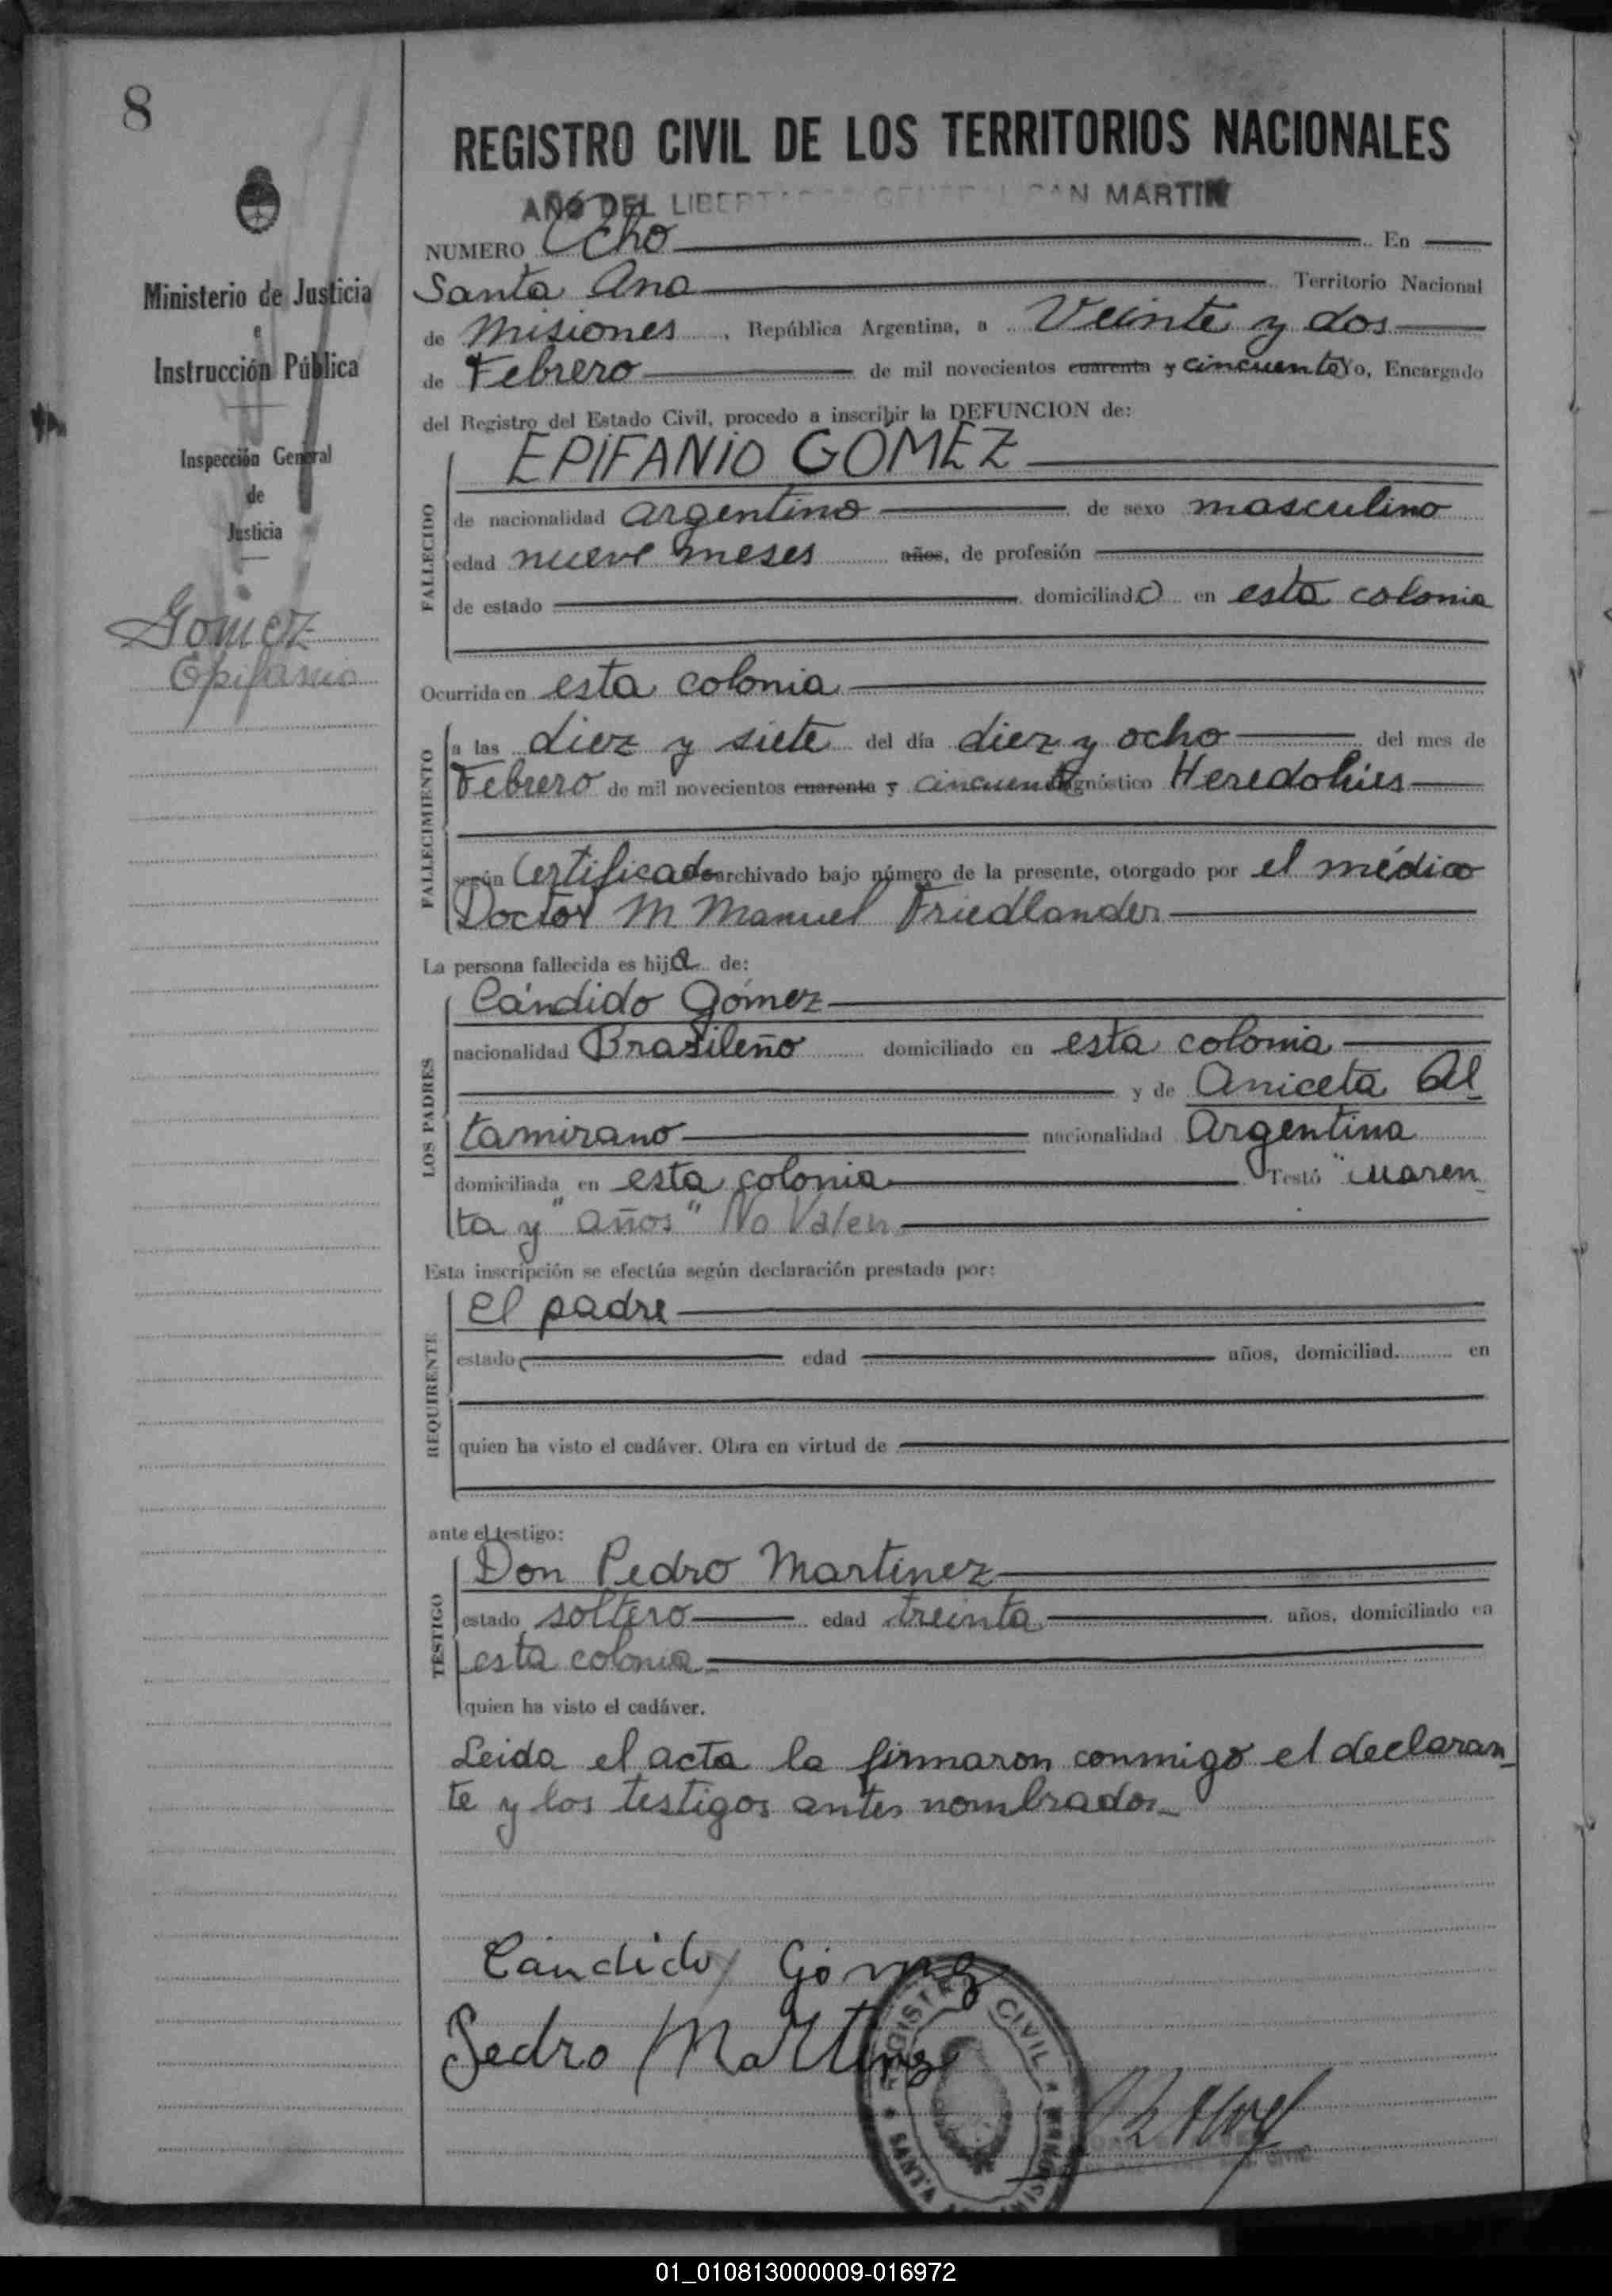 8
REGISTRO CIVIL DE LOS TERRITORIOS NACIONALES
AÑO DEL LIBERTADOR GENERAL SAN MARTIN
NUMERO Ocho En
Santa Ana Territorio Nacional
de Misiones, República Argentina, a Veinte y dos
de Febrero de mil novecientos cuarenta y cincuenta Yo, Encargado
del Registro del Estado Civil, procedo a inscribir la DEFUNCION de:
Ministerio de Justicia
e
Instrucción Pública
Inspección General
de
Justicia
Gomez
Epifanio
FALLECIDO
EPIFANIO GÓMEZ
de nacionalidad argentino de sexo masculino
edad nueve meses años, de profesión
de estado domiciliado en esta colonia
Ocurrida en esta colonia
FALLECIMIENTO
a las diez y siete del día diez y ocho del mes de
Febrero de mil novecientos cuarenta y cincuenta Diagnóstico Heredolúes
según Certificado archivado bajo número de la presente, otorgado por el médico
Doctor M Manuel Friedlander
La persona fallecida es hijo de:
LOS PADRES
Cándido Gómez
nacionalidad Brasileño domiciliado en esta colonia
y de Aniceta Al
tamirano nacionalidad Argentina
domiciliada en esta colonia Testó "cuaren
ta y "años" No Valen
Esta inscripción se efectúa según declaración prestada por:
REQUIRENTE
el padre
estado edad años, domiciliad en
quien ha visto el cadáver. Obra en virtud de
ante el testigo:
TESTIGO
Don Pedro Martinez
estado soltero edad treinta años, domiciliado en
esta colonia
quien ha visto el cadáver.
Leida el acta la firmaron conmigo el declaran
te y los testigos antes nombrados
Cándido Gómez
Pedro Martinez
REGISTRO CIVIL
SANTA ANA MISIONES
01_010813000009-016972